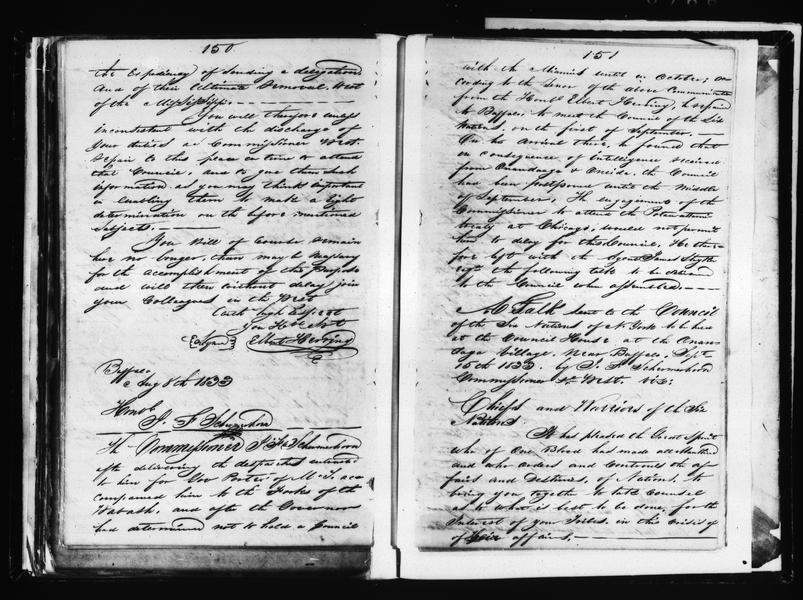 150
the Expediency of sending a delegation
and of their Ultimate removal West
of the Mississippi.
You will therefore unless
inconsistent with the discharge of
your duties as Commissioner West
repair to this place in time to attend
that Council, and to give them such
information as you may think important
in enabling them to make a right
determination on the before mentioned
subjects.
You will of Course remain
here no longer, than may be necessary
for the accomplishment of this purpose
and will then without delay, join
your Colleagues in the West
With high Respect
You Hble Svt
{Signed} Elbert Herring
Buffalo
Aug 8th 1833
Honble
J. F. Schermerhorn
The Commissioner J. F. Schermerhorn
after delivering the despatches entrusted
to him for Gov Porter of M. T. acc
companied him to the Forks of the
Wabash, and after the Governor
had determined not to hold a Council
151
with the Miamis until in October; ac
cording to the tenor of the above Communication
from the Honble Elbert Herring; he repaired
to Buffalo, to meet the Council of the Six
Nations, on the first of September.
On his arrival there, he found that
in consequence of intelligence received
from Onondaga & Oneida, the Council
had been postponed until the middle
of September, The engagements of the
Commissioner to attend the Potawatomi
treaty at Chicago, would not permit
him to delay for this Council, He there
fore left with the Agent James Stryker
Esqr the following talk to be delivered
to the Council when assembled.
A Talk sent to the Council
of the Six Nations of N York to be held
at the Council House at the Onon
daga Village, Near Buffalo, Sept
15th 1833. by J. F. Schermerhorn
Commissioner &c West. viz:
Chiefs and Warriors of the Six
Nations.
It has pleased the Great Spirit
who of One Blood has made all Mankind
and who orders and Controuls the af
fairs and Destinies, of Nations, to
bring you together to take Counsel
as to what is best to be done, for the
Interest of your Tribes, in this Crisis of
of affairs.